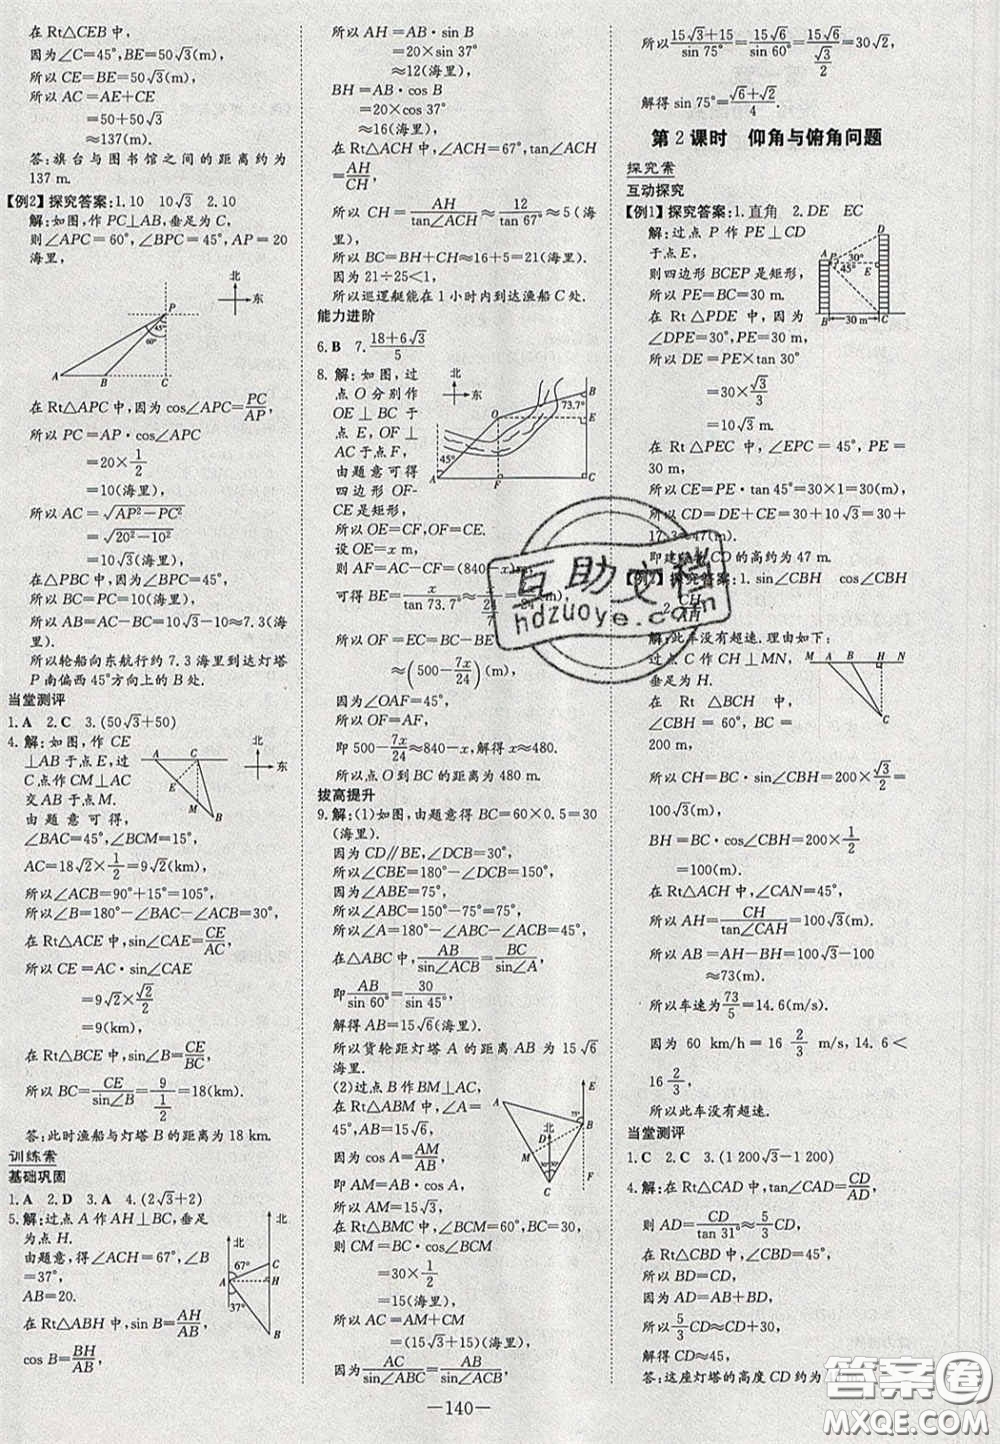 在Rt△CEB中,
因为∠C=45°,BE=50√3(m),
所以CE=BE=50√3(m),
所以AC=AE+CE
=50+50√3
≈137(m).
答:旗台与图书馆之间的距离约为
137 m.
【例2】探究答案:1.10 10√3 2.10
解:如图,作PC⊥AB,垂足为C,
则∠APC=60°,∠BPC=45°,AP=20
海里,
北
东
P
45°
60°
A B C
在Rt△APC中,因为cos∠APC=PC/AP,
所以PC=AP·cos∠APC
=20×1/2
=10(海里),
所以AC=√(AP²-PC²)
=√(20²-10²)
=10√3(海里).
在△PBC中,因为∠BPC=45°,
所以BC=PC=10(海里),
所以AB=AC-BC=10√3-10≈7.3(海里).
所以轮船向东航行约7.3海里到达灯塔
P南偏西45°方向上的B处.
当堂测评
1.A 2.C 3.(50√3+50)
4.解:如图,作CE
⊥AB于点E,过
点C作CM⊥AC
交AB于点M.
由题意可得,
∠BAC=45°,∠BCM=15°,
北
东
A C
E
M B
AC=18√2×1/2=9√2(km),
所以∠ACB=90°+15°=105°,
所以∠B=180°-∠BAC-∠ACB=30°,
在Rt△ACE中,sin∠CAE=CE/AC,
所以CE=AC·sin∠CAE
=9√2×√2/2
=9(km),
在Rt△BCE中,sin∠B=CE/BC,
所以BC=CE/sin∠B=9/(1/2)=18(km).
答:此时渔船与灯塔B的距离为18 km.
训练案
基础巩固
1.A 2.D 3.A 4.(2√3+2)
5.解:过点A作AH⊥BC,垂足
为点H.
由题意,得∠ACH=67°,∠B
=37°,
AB=20.
北
北
67°
C
A H
37°
B
在Rt△ABH中,sin B=AH/AB,
cos B=BH/AB,
所以AH=AB·sin B
=20×sin 37°
≈12(海里),
BH=AB·cos B
=20×cos 37°
≈16(海里).
在Rt△ACH中,∠ACH=67°,tan∠ACH
=AH/CH,
所以CH=AH/tan∠ACH≈12/tan 67°≈5(海
里),
所以BC=BH+CH≈16+5=21(海里).
因为21÷25<1,
所以巡逻艇能在1小时内到达渔船C处.
能力进阶
6.B 7.(18+6√3)/5
8.解:如图,过
点O分别作
OE⊥BC于
点E,OF⊥
AC于点F,
由题意可得
四边形OF-
CE是矩形,
北
东
O B
73.7° E
45°
A F C
所以OE=CF,OF=CE.
设OE=x m,
则AF=AC-CF=(840-x)
可得BE=x/tan 73.7°
所以OF=EC=BC-BE
≈(500-7x/24)(m),
因为∠OAF=45°,
所以OF=AF,
即500-7x/24≈840-x,解得x≈480.
所以点O到BC的距离为480 m.
拔高提升
9.解:(1)如图,由题意得BC=60×0.5=30
(海里).
因为CD∥BE,∠DCB=30°,
所以∠CBE=180°-∠DCB=150°,
因为∠ABE=75°,
所以∠ABC=150°-75°=75°,
所以∠A=180°-∠ABC-∠ACB=45°,
在△ABC中,AB/sin∠ACB=BC/sin∠A,
即AB/sin 60°=30/sin 45°,
解得AB=15√6(海里).
所以货轮距灯塔A的距离为15√6
海里.
(2)过点B作BM⊥AC,
在Rt△ABM中,∠A=
45°,AB=15√6,
因为cos A=AM/AB,
所以AM=AB·cos A
=15√3,
E
A 75°
北 B
D
M
30° 30°
C F
在Rt△BMC中,∠BCM=60°,BC=30,
则CM=BC·cos∠BCM
=30×1/2
=15(海里),
所以AC=AM+CM
=(15√3+15)(海里).
因为AC/sin∠ABC=AB/sin∠ACB,
所以(15√3+15)/sin 75°=15√6/sin 60°=15√6/(√3/2)=30√2,
解得sin 75°=(√6+√2)/4.
第2课时 仰角与俯角问题
探究案
互动探究
【例1】探究答案:1.直角 2.DE EC
解:过点P作PE⊥CD
于点E,
则四边形BCEP是矩形,
所以PE=BC=30 m.
在Rt△PDE中,
∠DPE=30°,PE=30 m,
D
A P 30° E
45°
B 30 m C
所以DE=PE×tan 30°
=30×√3/3
=10√3(m).
在Rt△PEC中,∠EPC=45°,PE=
30 m,
所以CE=PE·tan 45°=30×1=30(m),
所以CD=DE+CE=30+10√3=30+
17.3≈47(m).
即建筑物CD的高约为47 m.
【例2】探究答案:1.sin∠CBH cos∠CBH
2.CH/AH
解:此车没有超速.理由如下:
过点C作CH⊥MN,
垂足为H.
在Rt△BCH中,
∠CBH=60°,BC=
200 m,
M A B H N
C
所以CH=CB·sin∠CBH=200×√3/2=
100√3(m),
BH=BC·cos∠CBH=200×1/2
=100(m).
在Rt△ACH中,∠CAN=45°,
所以AH=CH/tan∠CAH=100√3(m),
所以AB=AH-BH=100√3-100
≈73(m).
所以车速为73/5=14.6(m/s).
因为60 km/h=16 2/3 m/s,14.6<
16 2/3,
所以此车没有超速.
当堂测评
1.C 2.C 3.(1 200√3-1 200)
4.解:在Rt△CAD中,tan∠CAD=CD/AD,
则AD=CD/tan 31°≈5/3 CD,
在Rt△CBD中,∠CBD=45°,
所以BD=CD,
因为AD=AB+BD,
所以5/3 CD≈CD+30,
解得CD≈45,
答:这座灯塔的高度CD约为
—140—
互助文档
hdzuoye.com
答案圈
MXQE.COM